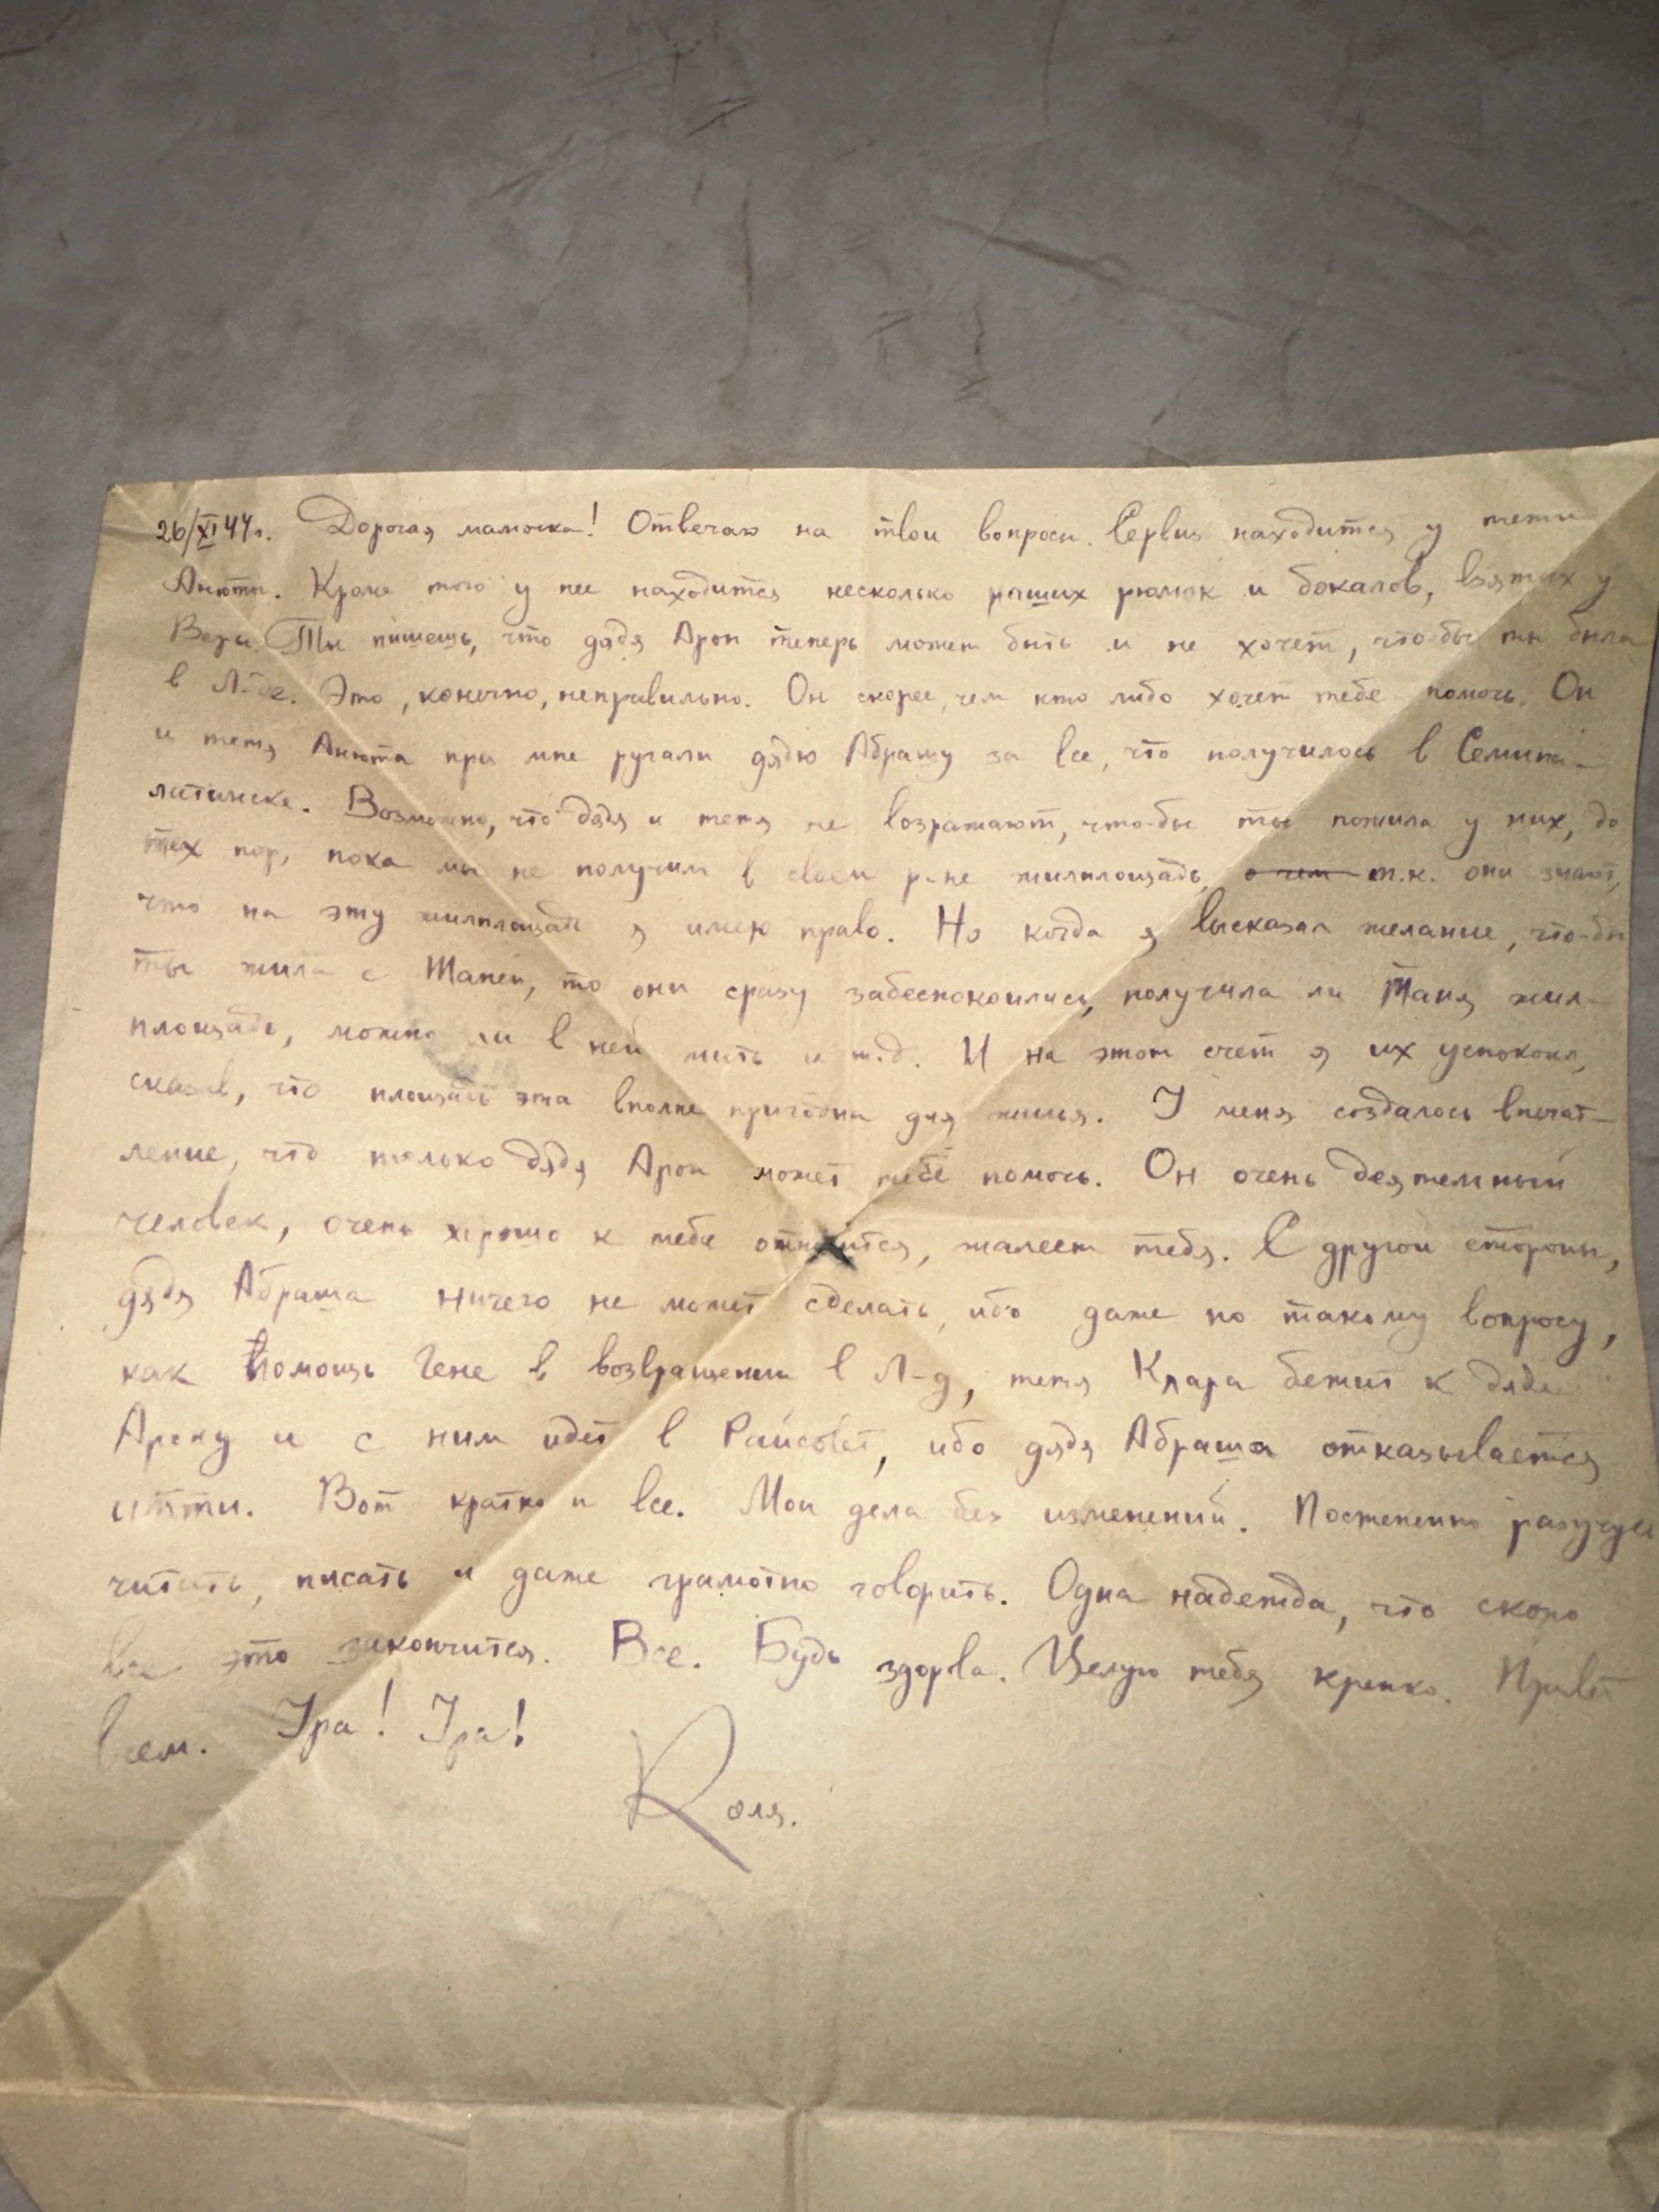 26/XI 44г. Дорогая мамочка! Отвечаю на твои вопросы. Сервиз находится у тети
Анюты. Кроме того у нее находится несколько наших рюмок и бокалов, взятых у
Веры. Ты пишешь, что дядя Арон теперь может быть и не хочет, что-бы ты была
в Л-де. Это, конечно, неправильно. Он скорее, чем кто либо хочет тебе помочь. Он
и тетя Анюта при мне ругали дядю Абрашу за все, что получилось в Семипа-
латинске. Возможно, что дядя и тетя не возражают, что-бы ты пожила у них, до
тех пор, пока мы не получим в своем р-не жилплощадь, о чем т.к. они знают,
что на эту жилплощадь я имею право. Но когда я высказал желание, что-бы
ты жила с Таней, то они сразу забеспокоились, получила ли Таня жил-
площадь, можно ли в ней жить и т.д. И на этот счет я их успокоил,
сказав, что площадь эта вполне пригодна для жилья. У меня создалось впечат-
ление, что только дядя Арон может тебе помочь. Он очень деятельный
человек, очень хорошо к тебе относится, жалеет тебя. С другой стороны,
дядя Абраша ничего не может сделать, ибо даже по такому вопросу,
как помощь Гене в возвращении в Л-д, тетя Клара бежит к дяде
Арону и с ним идет в Райсовет, ибо дядя Абраша отказывается
итти. Вот кратко и все. Мои дела без изменений. Постепенно разучусь
читать, писать и даже грамотно говорить. Одна надежда, что скоро
все это закончится. Все. Будь здорова. Целую тебя крепко. Привет
всем. Ура! Ура!
Коля.